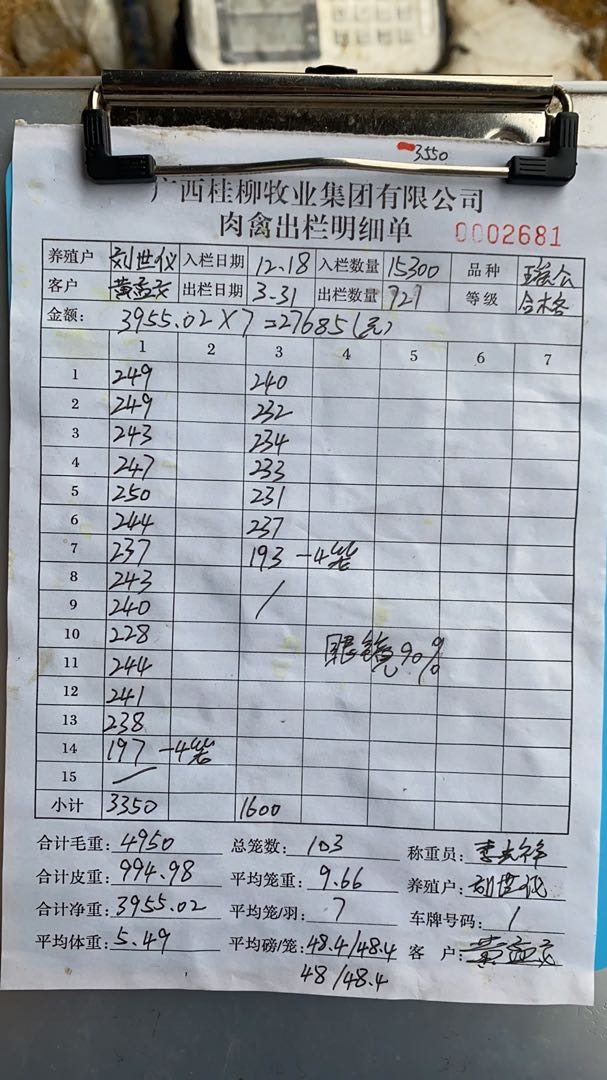 3550
广西桂柳牧业集团有限公司
肉禽出栏明细单 0002681
养殖户 刘世仪 入栏日期 12.18 入栏数量 15300 品种 瑶公
客户 黄孟交 出栏日期 3-31 出栏数量 727 等级 合格
金额: 3955.02×7=27685(元)
1 2 3 4 5 6 7
1 249 240
2 249 232
3 243 234
4 247 233
5 250 231
6 244 237
7 237 193 -4笼
8 243
9 240 /
10 228 眼镜90%
11 244
12 241
13 238
14 197 -4笼
15 /
小计 3350 1600
合计毛重: 4950 总笼数: 103 称重员:
合计皮重: 994.98 平均笼重: 9.66 养殖户: 刘世仪
合计净重: 3955.02 平均笼/羽: 7 车牌号码: /
平均体重: 5.49 平均磅/笼: 48.4/48.4 客户: 黄孟交
48/48.4